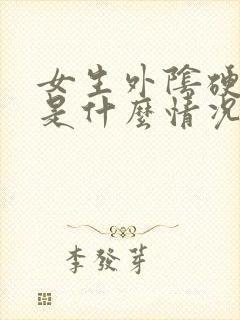 女生外陰硬
是什麼情況
李發芽